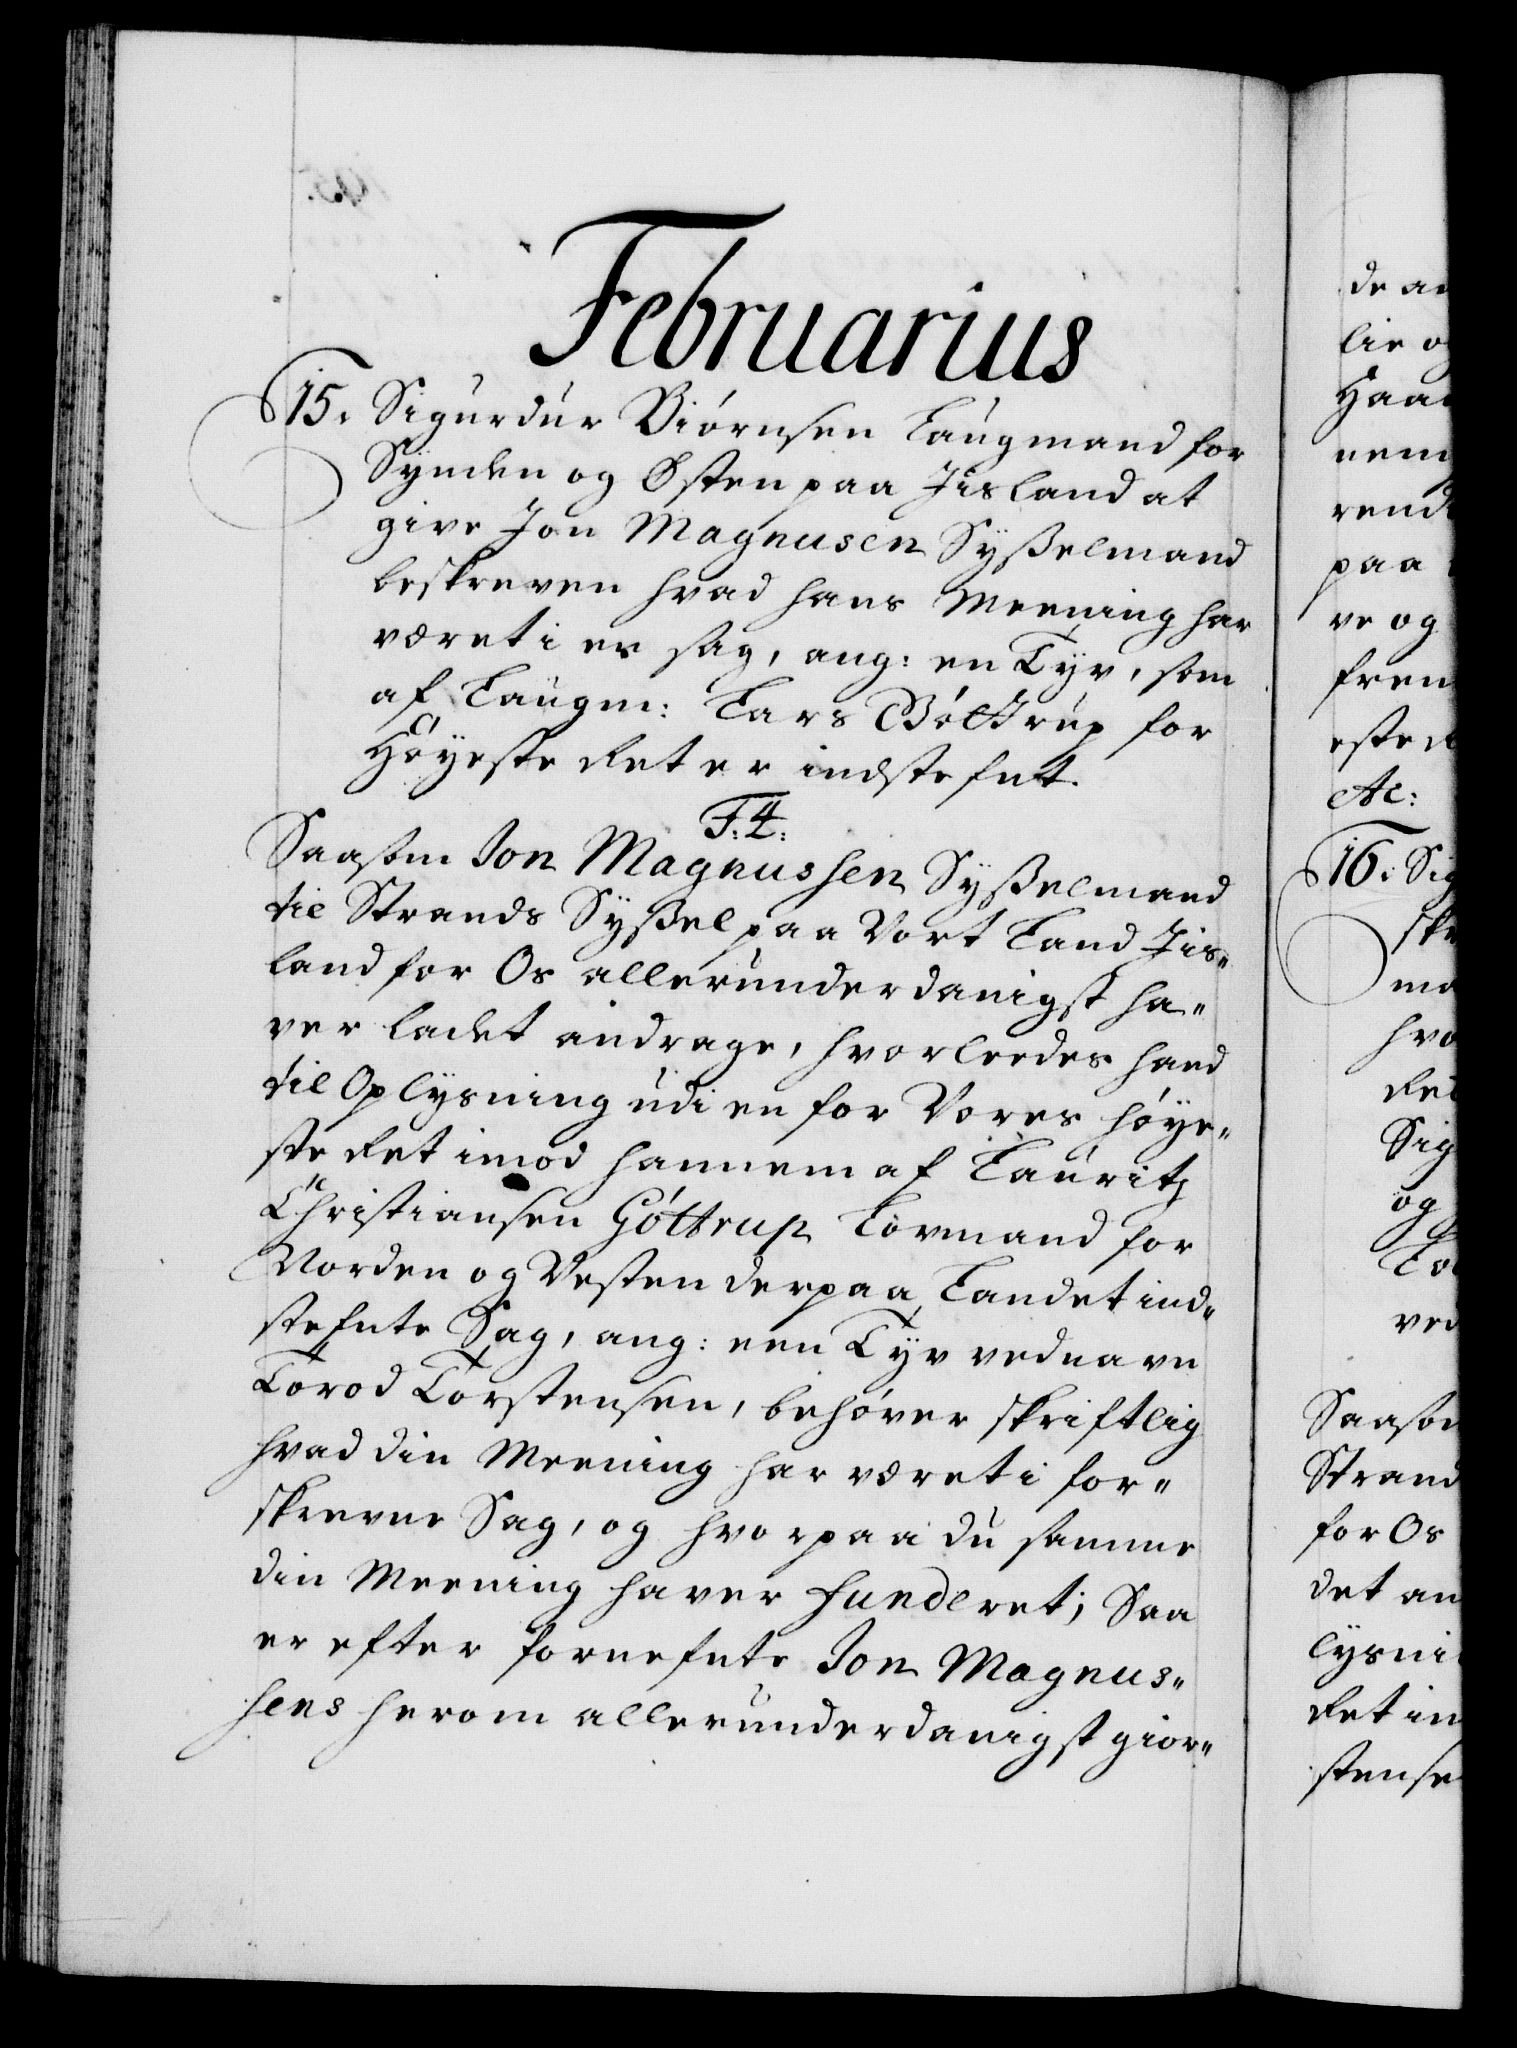 Februarius
15. Sigurdur Biörnsen Laugmand for
Synden og Østen paa Jisland at
give Jon Magnusen Sysselmand
beskreven hvad hans Meening har
været i en sag, ang: en Tyv, som
af Laugm: Lars Göttrup for
Høyeste Ret er indstefnt.
F: 4:
Saasom Jon Magnussen Sysselmand
til Strands Syssel paa Vort Land Jis„
land for Os allerunderdanigst ha„
ver ladet andrage, hvorleedes hand
til Oplysning udi en for Vores høye„
ste Ret imod hannem af Lauritz
Christiansen Göttrup Lovmand for
Norden og Vesten der paa Landet ind„
stefnte Sag, ang: een Tyv ved navn
Torod Torstensen, behøver skriftlig
hvad din Meening har været i for„
skrevne Sag, og hvorpaa du samme
din Meening haver funderet; Saa
er efter fornefnte Jon Magnus„
sens herom allerunderdanigst gior„
de an
lie og
Haan
nem
rend
paa
ve og
frem
este R
Ac:
16. Sig
skr
ma
hva
Ret
Sig
og
Lo
ved
Saasom
Strand
for Os
det an
lysni
Ret im
stense